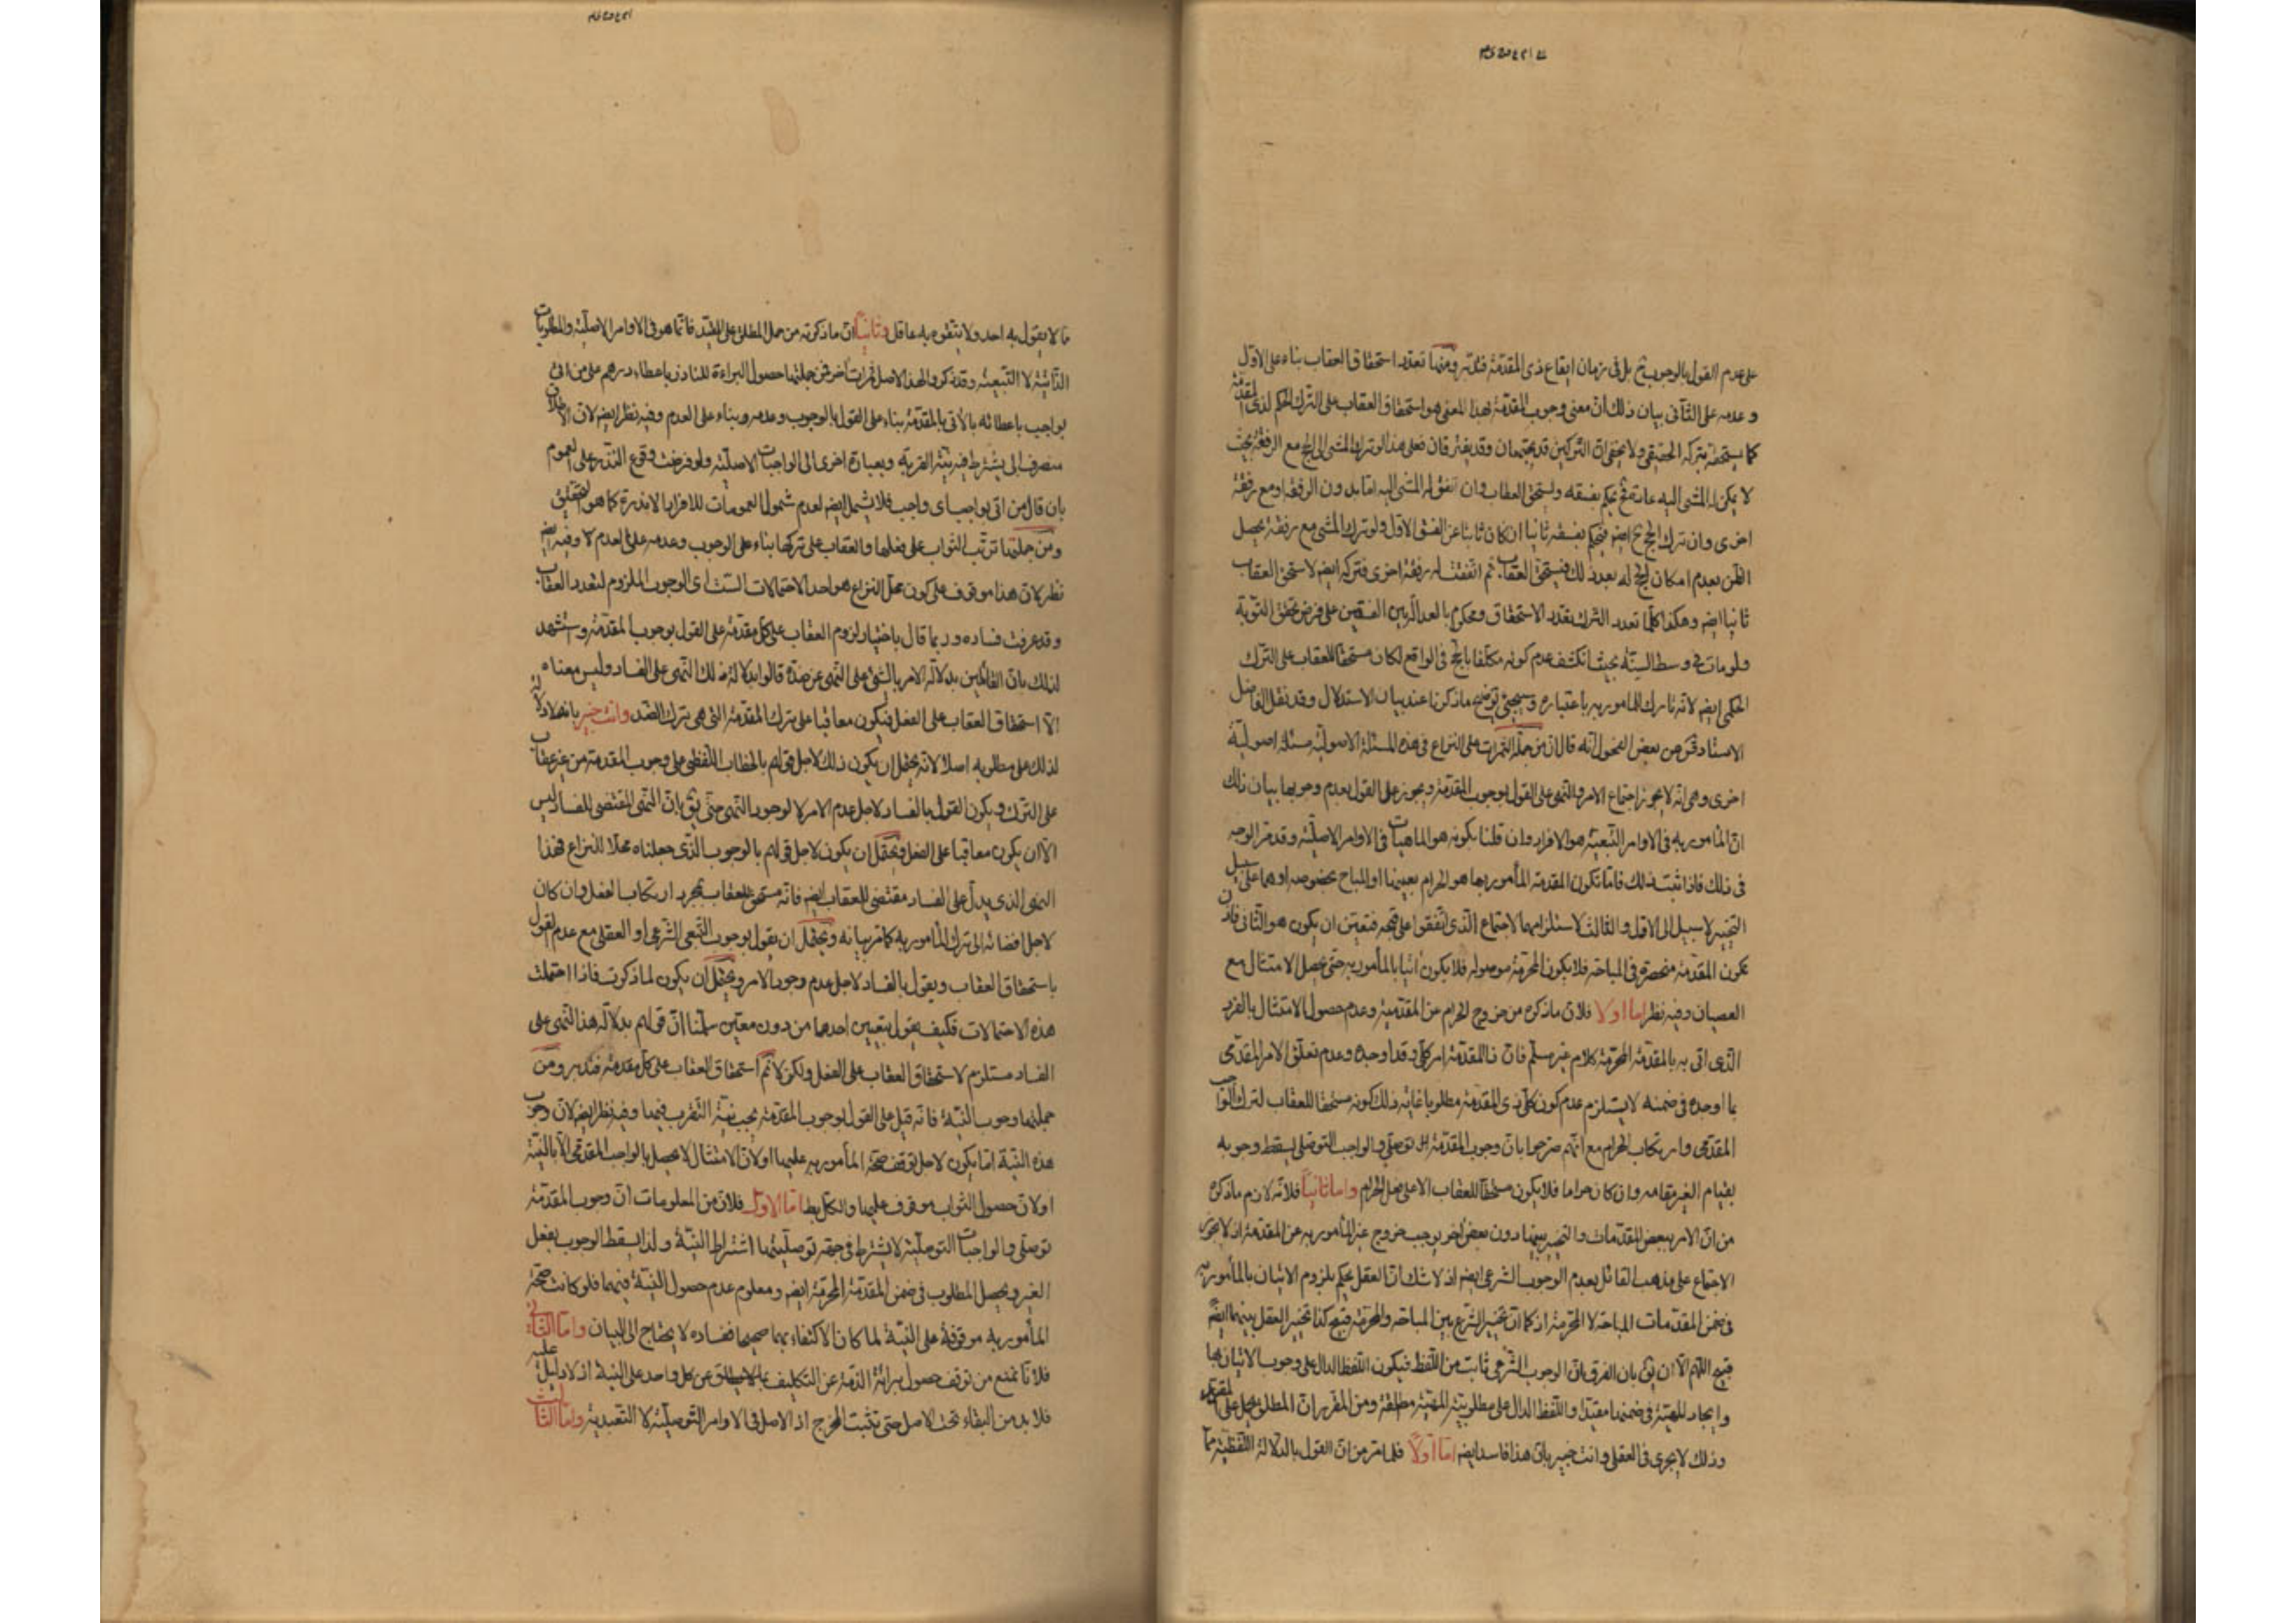 على عدم القول بالوجوب ح بل في زمان ايقاع ذي المقدمة فتدبر ومنها تعدد استحقاق العقاب بناء على الاول
وعدمه على الثاني بيان ذلك ان معنى وجوب المقدمة بهذا المعنى هو استحقاق العقاب على الترك الحكمي لذي المقدمة
كما يستحقه بتركه الحقيقي ولا يخفى ان التركين قد يجتمعان وقد يفترقان فعلى هذا لو ترك المشي الى الحج مع الرفقة بحيث
لا يمكن له المشي اليه عادة يحكم بفسقه ويستحق العقاب وان اتفق له المشي اليه اما بدون الرفقة او مع رفقة
اخرى وان ترك الحج ح ايضا فيحكم بفسقه ثانيا ان كان تائبا عن الفسق الاول ولو ترك المشي مع رفقة يحصل
الظن بعدم امكان الحج له بعد ذلك فيستحق العقاب ثم اتفقت له رفقة اخرى فتركه ايضا لاستحق العقاب
ثانيا ايضا وهكذا كلما تعدد الترك يتعدد الاستحقاق ومحكوم بالعدالة بين الفسقين على فرض تحقق التوبة
ولو مات في وسط السنة بحيث انكشف عدم كونه مكلفا بالحج في الواقع لكان مستحقا للعقاب على الترك
الحكمي ايضا لانه تارك للمامور به باعتباره وسيجيئ توضيح ما ذكرنا عند بيان الاستدلال وقد نقل الفاضل
الاستاد عن بعض الفحول انه قال ان من جملة الثمرات على النزاع في هذه المسئلة الاصولية مسئلة اصولية
اخرى وهي انه لا يجوز اجتماع الامر والنهي على القول بوجوب المقدمة ويجوز على القول بعدم وجوبها بيان ذلك
ان المأمور به في الاوامر التبعية هو الافراد وان قلنا بكونه هو الماهيات في الاوامر الاصلية وقد مر الوجه
في ذلك فاذا ثبت ذلك فاما تكون المقدمة المأمور بها هو الحرام بعينها او المباح بخصوصه او هما على سبيل
التخيير لا سبيل الى الاول والثالث لاستلزامهما الاجتماع الذي اتفقوا على قبحه فتعين ان يكون هو الثاني فاذن
تكون المقدمة منحصرة في المباحة فلا يكون المحرمة موصولة فلا يكون اتيا بالمأمور به حتى يحصل الامتثال مع
العصيان وفيه نظر اما اولا فلان ما ذكره من خروج الحرام عن المقدمية وعدم حصول الامتثال بالفرد
الذي اتى به بالمقدمة المحرمة كلام غير مسلم فان المقدمة امر كلي وقد اوجده وعدم تعلق الامر المقدمي
بما اوجده في ضمنه لا يستلزم عدم كون كلي ذي المقدمة مطلوبا غاية ذلك كونه مستحقا للعقاب لترك الواجب
المقدمي وارتكاب الحرام مع انهم صرحوا بان وجوب المقدمة توصلي والواجب التوصلي يسقط وجوبه
بقيام الغير مقامه وان كان حراما فلا يكون مستحقا للعقاب الا على فعل الحرام واما ثانيا فلانه لازم ما ذكره
من ان الامر ببعض المقدمات والتخيير بينها دون بعض اخر يوجب خروج غير المأمور به عن المقدمة اذ لا يجوز
الاجتماع على مذهب القائل بعدم الوجوب الشرعي ايضا اذ لا شك ان العقل يحكم بلزوم الاتيان بالمأمور به
في ضمن المقدمات المباحة لا المحرمة اذ كما ان تخيير الشرع بين المباحة والمحرمة قبيح كذا تخيير العقل بينهما ايضا
قبيح اللهم الا ان يق بان الفرق ان الوجوب الشرعي ثابت من اللفظ فيكون اللفظ الدال على وجوب الاتيان بها
وايجاد المهية في ضمنها مقيدا واللفظ الدال على مطلوبية المهية مطلقة ومن المقرر ان المطلق يحمل على المقيد
وذلك لا يجري في العقل وانت خبير بان هذا فاسد ايضا اما اولا فلما مر من ان القول بالدلالة اللفظية مما
ما لا يقول به احد ولا يتفوه به عاقل وثانيا ان ما ذكرته من حمل المطلق على المقيد فانما هو في الاوامر الاصلية والمطلوبات
الذاتية لا التبعية وقد ذكروا لهذا الاصل ثمرات اخر فمن جملتها حصول البراءة للناذر باعطاء درهم على من اتى
بواجب باعطائه بالاتي بالمقدمة بناء على القول بالوجوب وعدمه وبناء على العدم وفيه نظر ايضا لان الاطلاق
منصرف الى يشترط فيه نية القربة وبعبارة اخرى الى الواجبات الاصلية ولو فرضت وقوع النذر على العموم
بان قال من اتى بواجب اي واجب فلا يشمل ايضا لعدم شمول العمومات للافراد الاندرة كما هو التحقيق
ومن جملتها ترتب الثواب على فعلها والعقاب على تركها بناء على الوجوب وعدمه على العدم لا وفيه ايضا
نظر لان هذا موقوف على كون محل النزاع هو احد الاحتمالات الستة اي الوجوب الملزوم لتعدد العقاب
وقد عرفت فساده وربما قال باختيار لزوم العقاب على كل مقدمة على القول بوجوب المقدمة واستشهد
لذلك بان القائلين بدلالة الامر بالشيء على النهي عن ضده قالوا بدلالة ذلك النهي على الفساد وليس معناه
الا استحقاق العقاب على الفعل فيكون معاقبا على ترك المقدمة التي هي ترك الضد وانت خبير بانه لا دلالة
لذلك على مطلوبه اصلا لانه يحتمل ان يكون ذلك لاجل قولهم بالخطاب اللفظي على وجوب المقدمة من غير عقاب
على الترك ويكون القول بالفساد لاجل عدم الامر لا لوجوب النهي حتى يق بان النهي المقتضي للفساد ليس
الا ان يكون معاقبا على الفعل ويحتمل ان يكون لاجل قولهم بالوجوب الذي جعلناه محلا للنزاع فهذا
النهي الذي يدل على الفساد مقتضى للعقاب ايضا فانه مستحق للعقاب بمجرد ارتكاب الفعل وان كان
لاجل افضائه الى ترك المأمور به كما مر بيانه ويحتمل ان يقول بوجوب التبعي الشرعي او العقلي مع عدم القول
باستحقاق العقاب ويقول بالفساد لاجل عدم وجود الامر ويحتمل ان يكون لما ذكرت فاذا احتملت
هذه الاحتمالات فكيف يقول بتعيين احدها من دون معين سلمنا ان قولهم بدلالة هذا النهي على
الفساد مستلزم لاستحقاق العقاب على الفعل ولكن لا نم استحقاق العقاب على كل مقدمة فتدبر ومن
جملتها وجوب النية فانه قيل على القول بوجوب المقدمة يجب نية التقرب فيها وفيه نظر ايضا لان وجوب
هذه النية اما يكون لاجل توقف صحة المأمور به عليها او لان الامتثال لا يحصل بالواجب المقدمي الا بالنية
او لان حصول الثواب موقوف عليها والكل بط اما الاول فلان من المعلومات ان وجوب المقدمة
توصلي والواجبات التوصلية لا يشترط في جهة توصليتها اشتراط النية ولذا يسقط الوجوب بفعل
الغير ويحصل المطلوب في ضمن المقدمة المحرمة ايضا ومعلوم عدم حصول النية فيهما فلو كانت صحة
المأمور به موقوفة على النية لما كان الاكتفاء بهما صحيحا ففساده لا يحتاج الى البيان واما الثاني
فلانا نمنع من توقف حصول براءة الذمة عن التكليف عن كل واحد على النية اذ لا دليل عليه
فلا بد من البقاء تحت الاصل حتى تثبت المخرج اذ الاصل في الاوامر التوصلية لا التعبدية واما الثالث